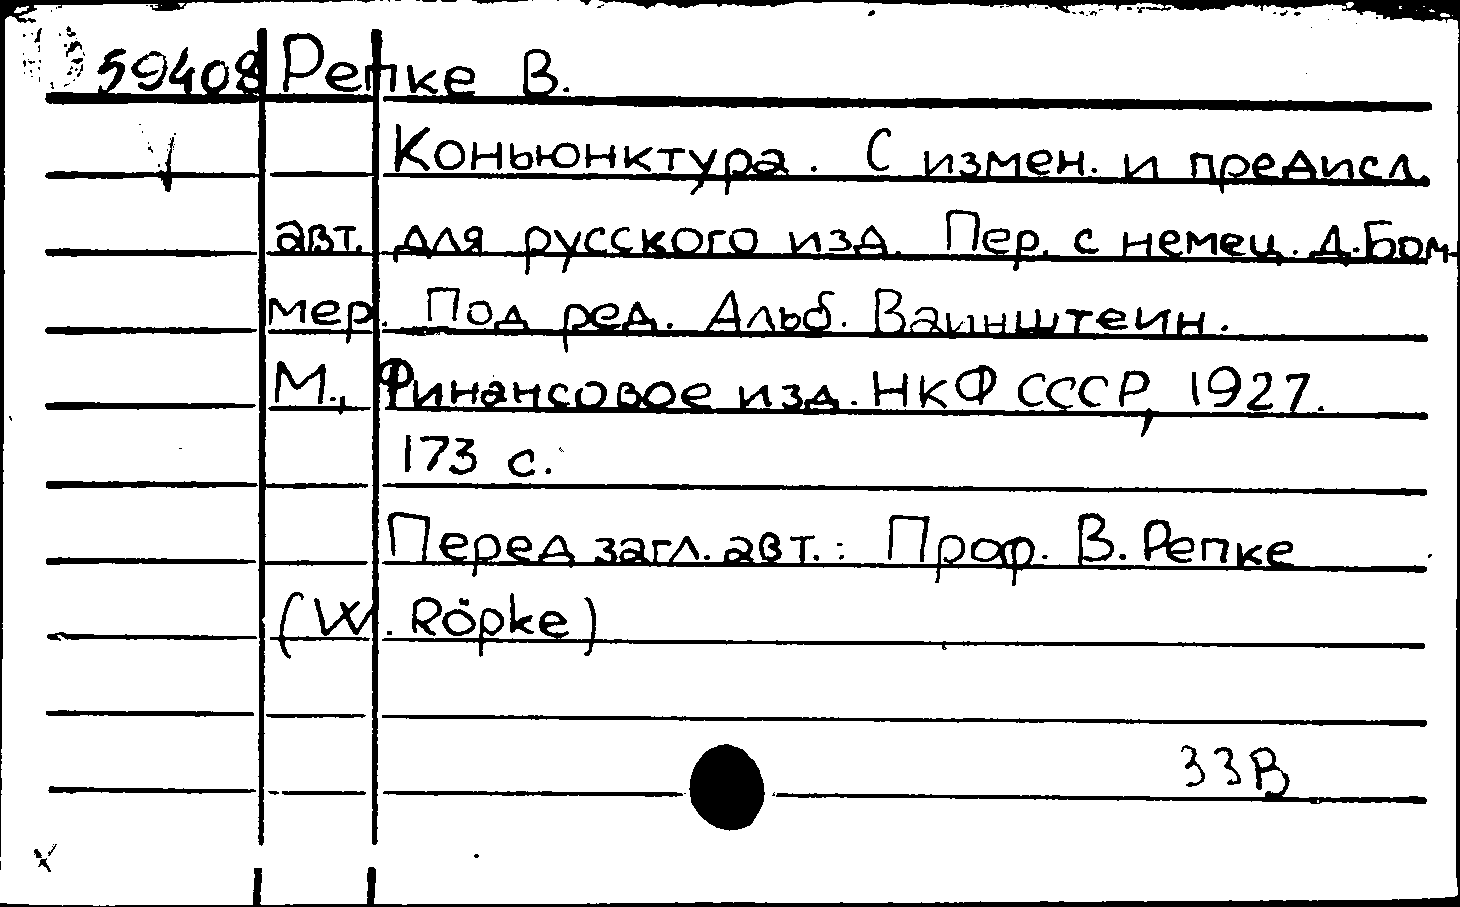 59408 Репке В.
Коньюнктура. С измен. и предисл.
авт. для русского изд. Пер. с немец. Д. Бом-
мер. Под ред. Альб. Ваинштеин.
М., Финансовое изд. НКФ СССР, 1927.
173 с.
Перед загл. авт.: Проф. В. Репке
(W. Röpke)
33В